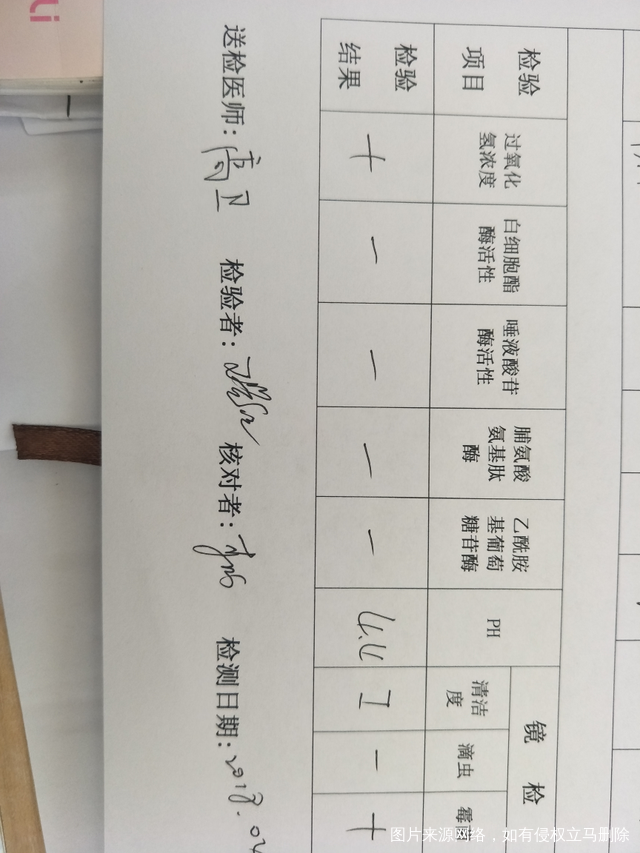 检验项目 过氧化氢浓度 白细胞酯酶活性 唾液酸苷酶活性 脯氨酸氨基肽酶 乙酰胺基葡萄糖苷酶 PH 镜检
清洁度 滴虫 霉
检验结果 + - - - - 4.4 I - +
送检医师: 高卫 检验者: 核对者: 检测日期: 2018.
图片来源网络,如有侵权立马删除